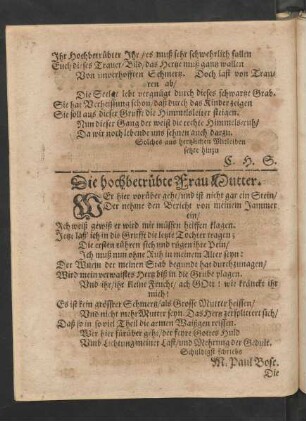 Ihr Hochbetrübter Ihr/ es muß sehr schwehrlich fallen
Euch dieses Trauer-Bild/ das Hertze muß gantz wallen
Von unverhofften Schmertz. Doch last von Trau-
ren ab/
Die Seelge lebt vergnügt durch dieses schwartze Grab.
Sie hat Verheissung schon/ daß durch das Kinder zeigen
Sie soll aus dieser Grufft die Himmelsleiter steigen.
Nun dieser Gang der weist die rechte Himmels-ruh/
Da wir noch lebende uns sehnen auch darzu.
Solches aus hertzlichen Mitleiden
setzte hinzu
C. H. S.
Die hochbetrübte Frau Mutter.
Wer hier vorüber geht/ und ist nicht gar ein Stein/
Der nehme den Bericht von meinem Jammer
ein/
Ich weiß gewiß er wird mir müssen helffen klagen.
Jetzt laß' ich in die Grufft die letzte Tochter tragen:
Die ersten rühren sich und regen ihre Bein/
Ich muß nun ohne Ruh in meinem Alter seyn:
Der Wurm der meinen Stab beginnt hat durchzunagen/
Wird mein verwaistes Hertz biß in die Grube plagen.
Und ihr/ ihr kleine Frucht/ ach GOtt! wie kränckt ihr
mich!
Es ist kein grösser Schmertz/ als Grosse Mutter heissen/
Und nicht mehr Mutter seyn. Das Hertz zersplittert sich/
Daß so viel Theil die armen Waißgen reissen.
Wer hier fürüber geht/ der bitte Gottes Huld
Umb Lichtung meiner Last/ und Mehrung der Gedult.
Schuldigst schriebs
M. Paul Bose.
Die